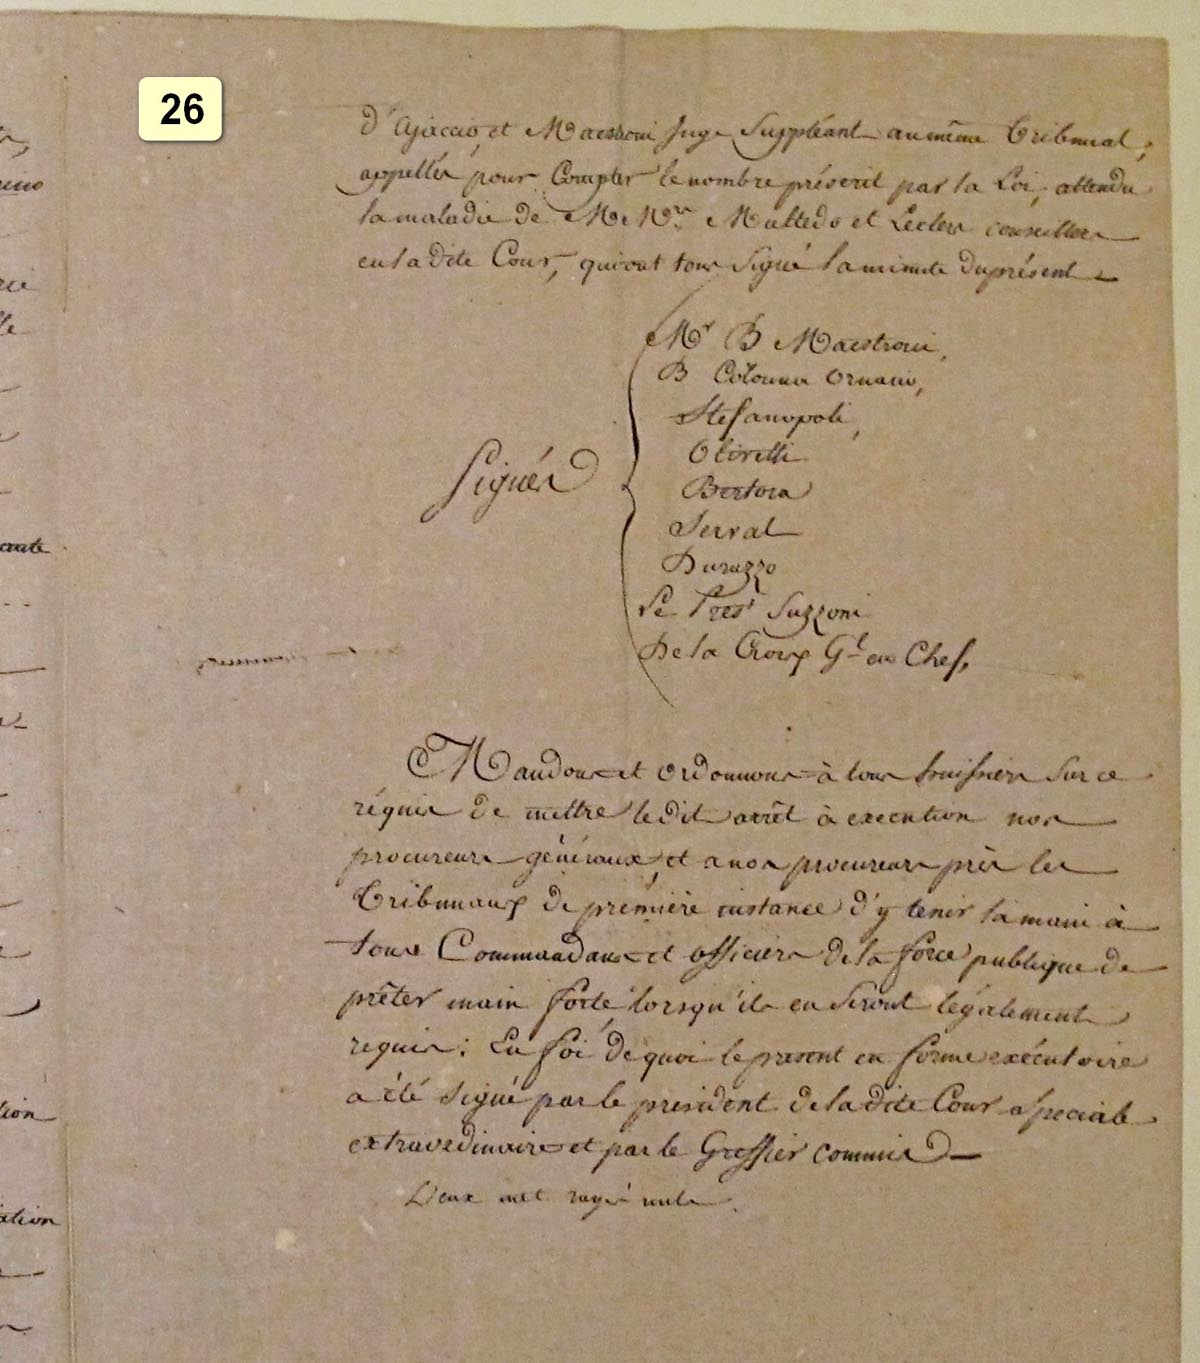 26
d'Ajaccio, et Maestroni Juge Suppléant au même Tribunal;
appellés pour Compter le nombre préscrit par la Loi, attendu
la maladie de M.M.rs Multedo et Leclerc conseillers
en la dite Cour, qui ont tous Signé la minute du présent
Mr B Maestroni,
B Colonna Ornano,
Stefanopoli,
Olivetti
Signés
Bertora
Serval
Durazzo
Le Prest Suzzoni
De la Croix Gl en Chef,
Mandons et ordonnons à tous huissiers Sur ce
réquis de mettre le dit arrêt à execution nos
procureurs généraux, et a nos procureurs près les
Tribunaux de première instance d'y tenir la main à
tous Commandans et officiers de la force publique de
prêter main forte lorsqu'ils en Seront légalement
requis: En foi de quoi le present en forme exécutoire
a été Signé par le president de la dite Cour speciale
extraordinaire et par le Greffier commis
Deux mot rayé nuls.
ante
tion
ation